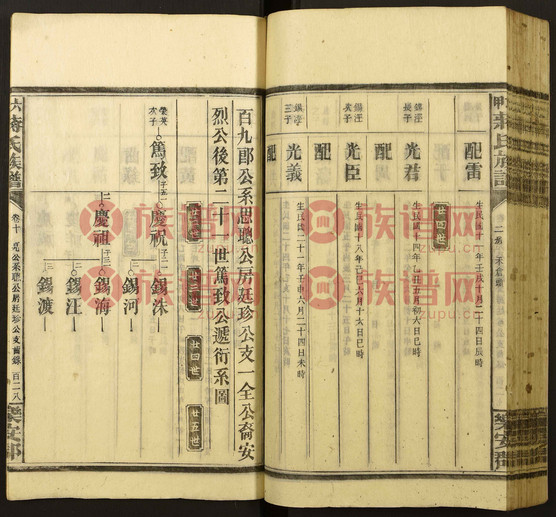 配雷
生民國十一年壬戌十月二十四日辰時
廿四世
錫汪長子
光君
生民國十四年乙丑五月初六日巳時
配
錫淳次子
光臣
生民國十八年己巳六月十六日巳時
配
錫淳三子
光義
生民國二十一年壬申六月二十四日未時
配
百九郎公系思聰公房廷珍公支一全公裔安
烈公後第二十 世篤致公遞衍系圖
廿三世
廿四世
廿五世
榮英次子
篤致
子二
慶祝
子二
錫洙
錫河
慶祖
子三
錫海
錫汪
錫渡
蔣氏族譜
卷十
百二八
樂安郡
族谱网
zupu.cn